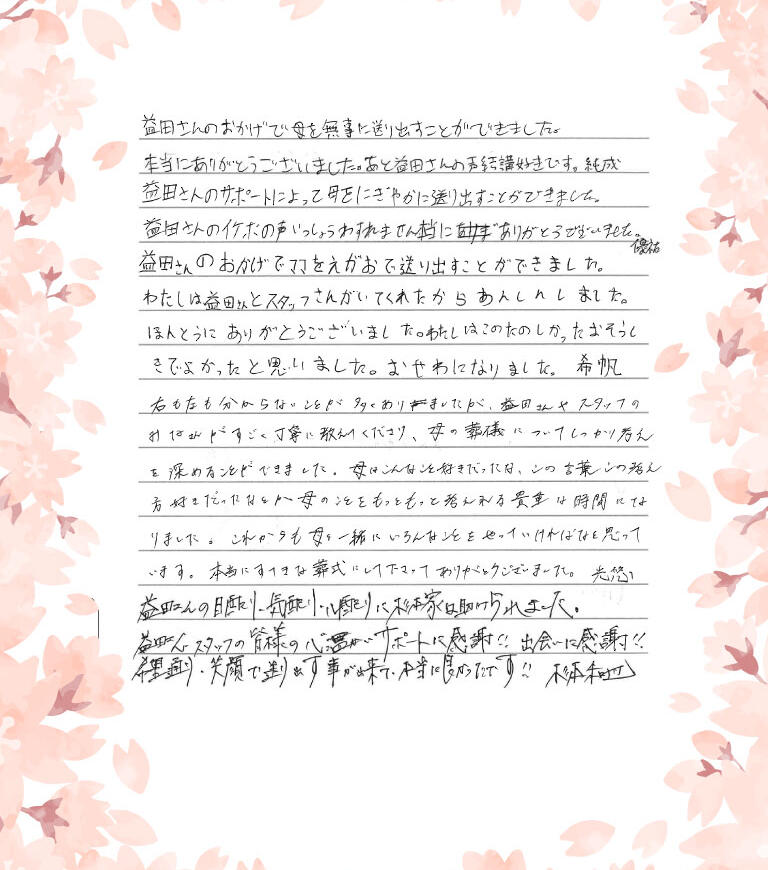 益田さんのおかげで母を無事に送り出すことができました。
本当にありがとうございました。あと益田さんの声結講好きです。純成
益田さんのサポートによって母をにぎやかに送り出すことができました。
益田さんのイケボの声いっしょうわすれません本当にありがとうございました。
優祐
益田さんのおかげでママをえがおで送り出すことができました。
わたしは益田さんとスタッフさんがいてくれたからあんしんしました。
ほんとうにありがとうございました。わたしはこのたのしかったおそうし
きでよかったと思いました。おせわになりました。 希帆
右も左も分からないことが多くありましたが、益田さんやスタッフの
みなさんがすごく丁寧に教えてくださり、母の葬儀についてしっかり考え
を深めることができました。母はこんなこと好きだったな、この言葉この考え
方好きだったなとか母のことをもっともっと考えれる貴重な時間にな
りました。これからも母と一緒にいろんなことをやっていければなと思って
います。本当にすてきな葬式にして下さってありがとうございました。 光悠
益田さんの目配り、気配り、心配りに杉本家は助けられました。
益田さん、スタッフの皆様の心温かいサポートに感謝!! 出会いに感謝!!
希望通り、笑顔で送り出す事が出来て、本当に良かったです!! 杉本